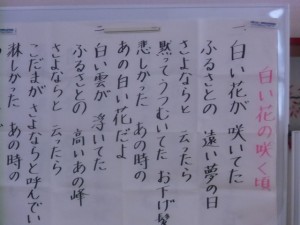 白い花の咲く頃
一 白い花が 咲いてた
ふるさとの 遠い夢の日
さよならと 云ったら
黙ってうつむいてた お下げ髪
悲しかった あの時の
あの白い花だよ
二 白い雲が 浮いてた
ふるさとの 高いあの峰
さよならと 云ったら
こだまが さよならと呼んでい
淋しかった あの時の